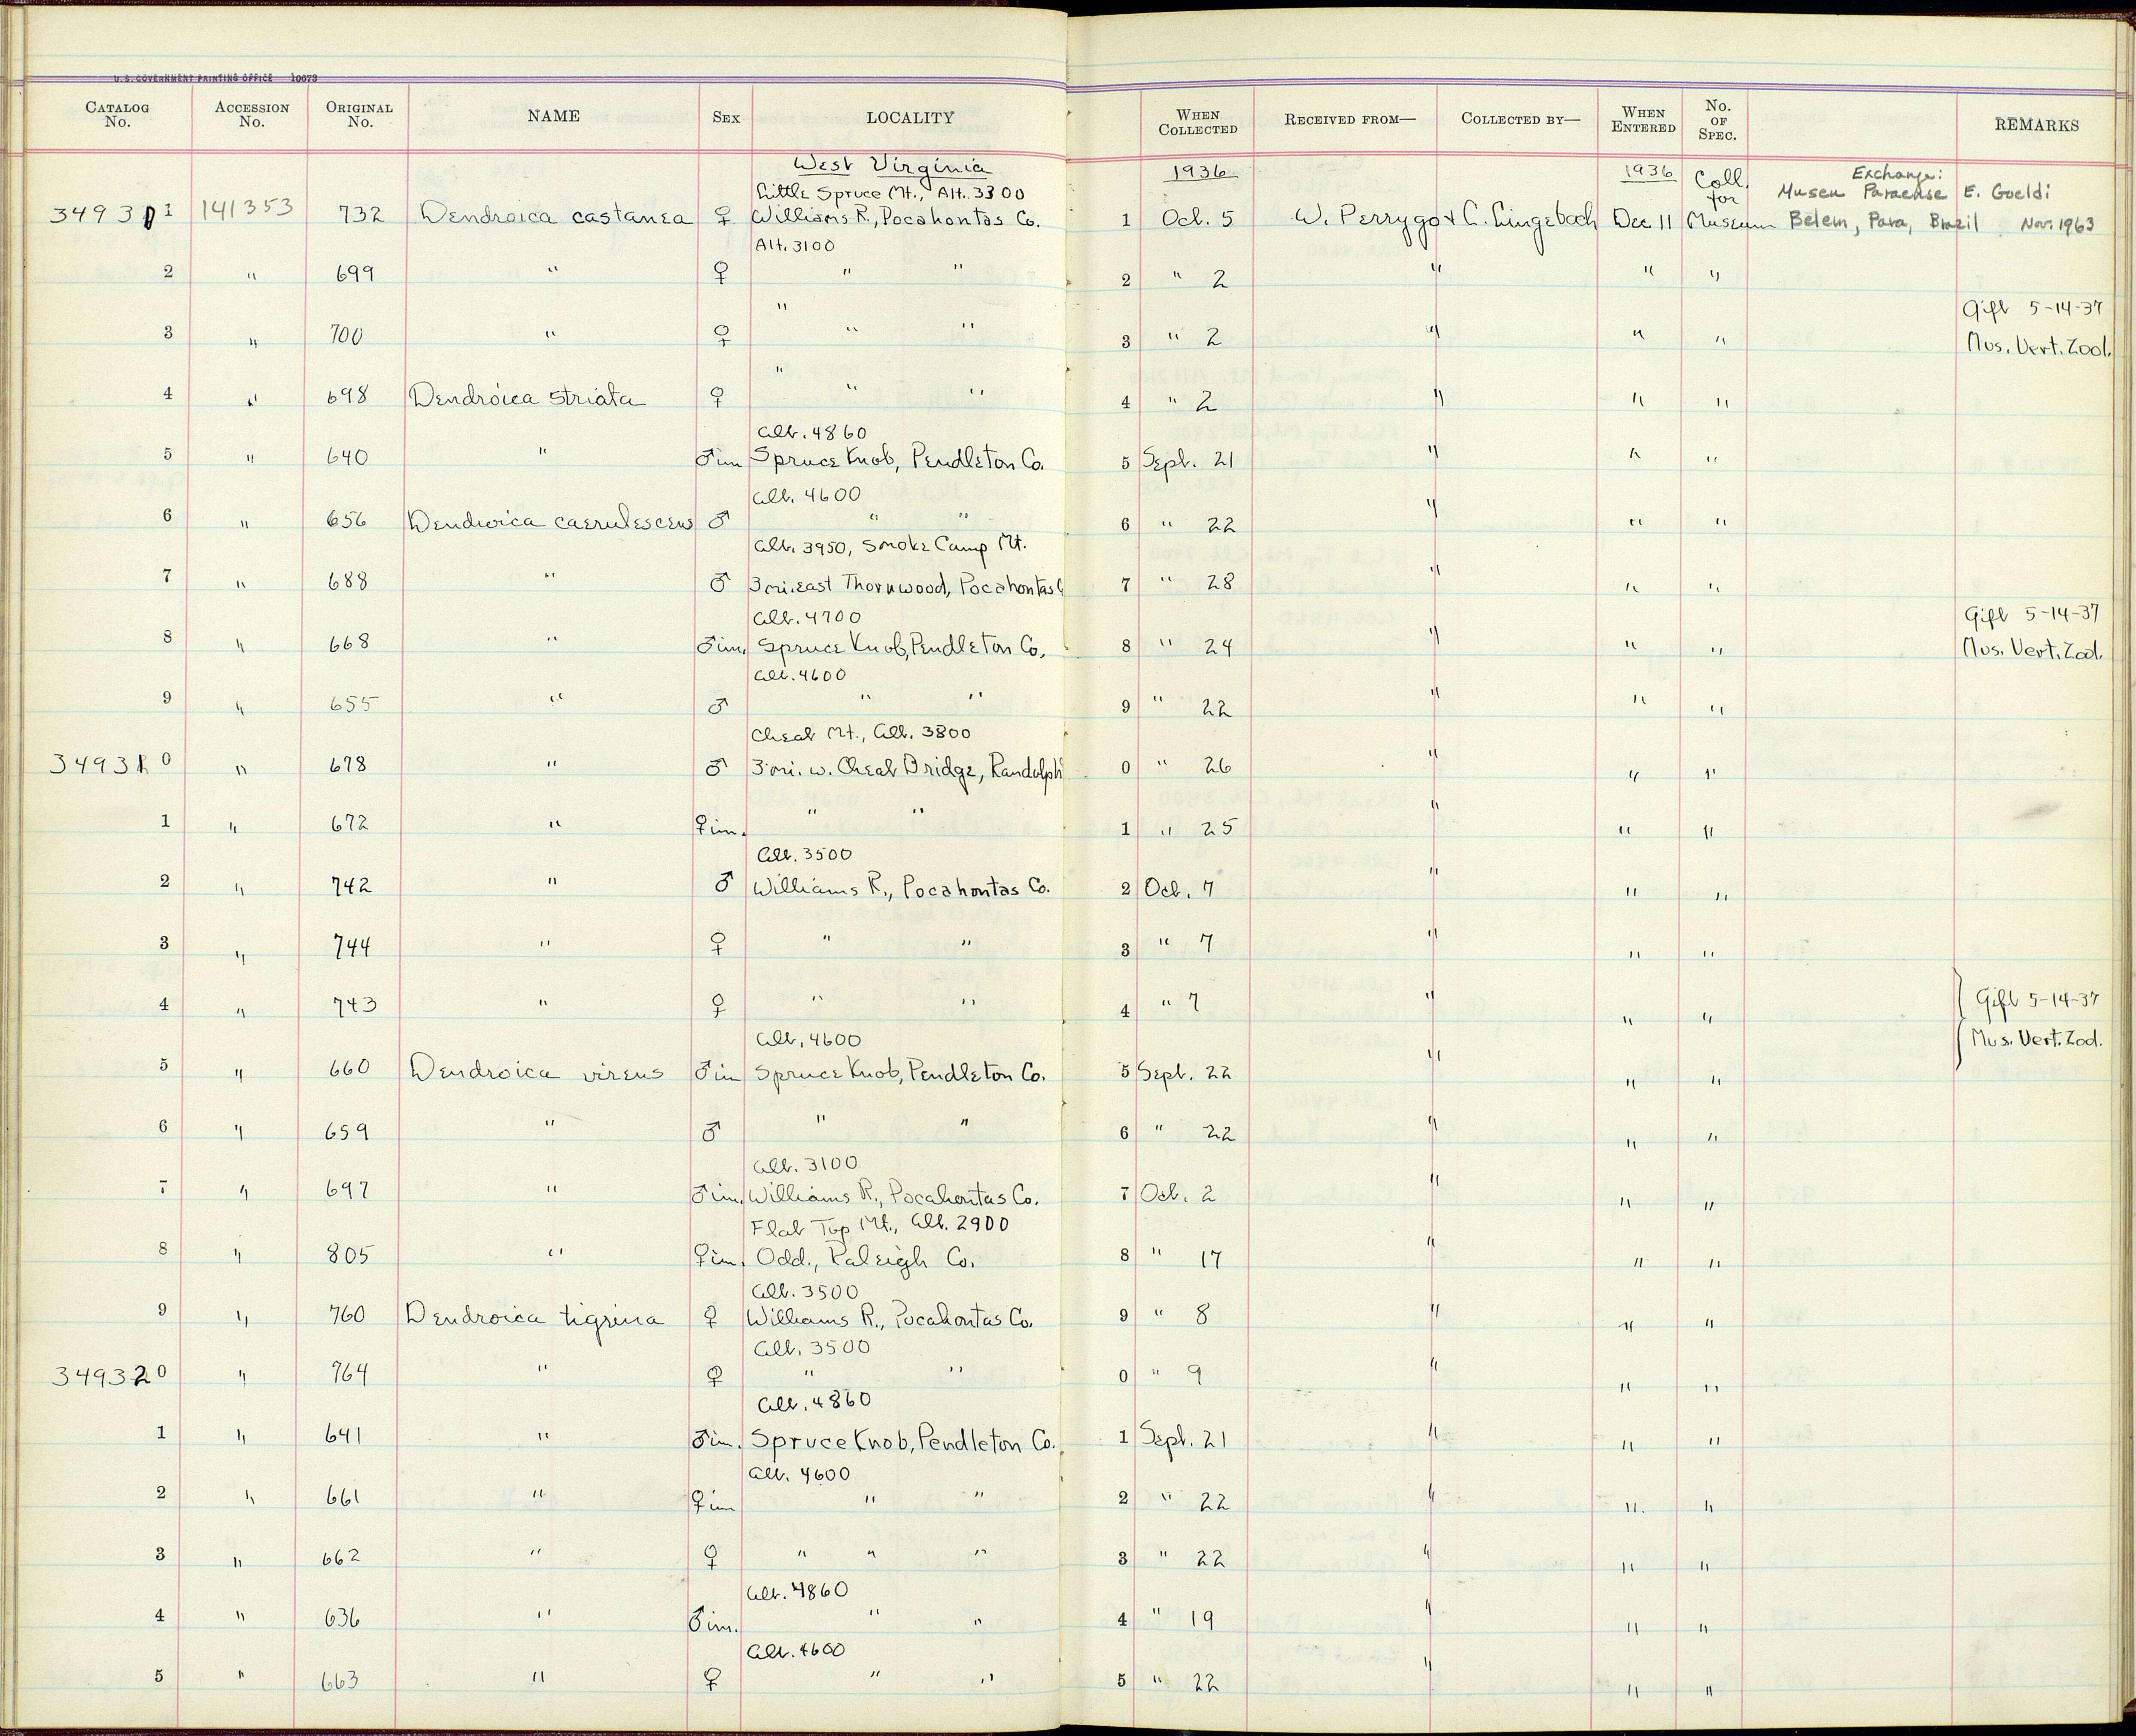 U.S. GOVERNMENT PRINTING OFFICE 10673
CATALOG No. ACCESSION No. ORIGINAL No. NAME SEX LOCALITY WHEN COLLECTED RECEIVED FROM— COLLECTED BY— WHEN ENTERED No. OF SPEC. REMARKS
West Virginia 1936 1936 Coll. Exchange:
Little Spruce Mt., Alt. 3300 for Museu Paraense E. Goeldi
34930 1 141353 732 Dendroica castanea ♀ Williams R., Pocahontas Co. 1 Oct. 5 W. Perrygo & C. Lingebach Dec 11 Museum Belem, Para, Brazil Nov. 1963
Alt. 3100
2 " 699 " ♀ " " 2 " 2 " " "
" Gift 5-14-37
3 " 700 " ♀ " " 3 " 2 " " " Mus. Vert. Zool.
"
4 " 698 Dendroica striata ♀ " " 4 " 2 " " "
Alt. 4860
5 " 640 " ♂im Spruce Knob, Pendleton Co. 5 Sept. 21 " " "
Alt. 4600
6 " 656 Dendroica caerulescens ♂ " " 6 " 22 " " "
Alt. 3950, Smoke Camp Mt.
7 " 688 " ♂ 3 mi. east Thornwood, Pocahontas C 7 " 28 " " "
Alt. 4700 Gift 5-14-37
8 " 668 " ♂im. Spruce Knob, Pendleton Co. 8 " 24 " " " Mus. Vert. Zool.
Alt. 4600
9 " 655 " ♂ " " 9 " 22 " " "
Cheat Mt., Alt. 3800
34931 0 " 678 " ♂ 3 mi. w. Cheat Bridge, Randolph 0 " 26 " " "
1 " 672 " ♀im. " " 1 " 25 " " "
Alt. 3500
2 " 742 " ♂ Williams R., Pocahontas Co. 2 Oct. 7 " " "
3 " 744 " ♀ " " 3 " 7 " " "
4 " 743 " ♀ " " 4 " 7 " " " Gift 5-14-37
Alt. 4600 Mus. Vert. Zool.
5 " 660 Dendroica virens ♂im Spruce Knob, Pendleton Co. 5 Sept. 22 " " "
6 " 659 " ♂ " " 6 " 22 " " "
Alt. 3100
7 " 697 " ♂im. Williams R., Pocahontas Co. 7 Oct. 2 " " "
Flat Top Mt., Alt. 2900
8 " 805 " ♀im. Odd., Raleigh Co. 8 " 17 " " "
Alt. 3500
9 " 760 Dendroica tigrina ♀ Williams R., Pocahontas Co. 9 " 8 " " "
Alt. 3500
34932 0 " 764 " ♀ " " 0 " 9 " " "
Alt. 4860
1 " 641 " ♂im. Spruce Knob, Pendleton Co. 1 Sept. 21 " " "
Alt. 4600
2 " 661 " ♀im " " 2 " 22 " " "
3 " 662 " ♀ " " " 3 " 22 " " "
Alt. 4860
4 " 636 " ♂im. " " 4 " 19 " " "
Alt. 4600
5 " 663 " ♀ " " 5 " 22 " " "